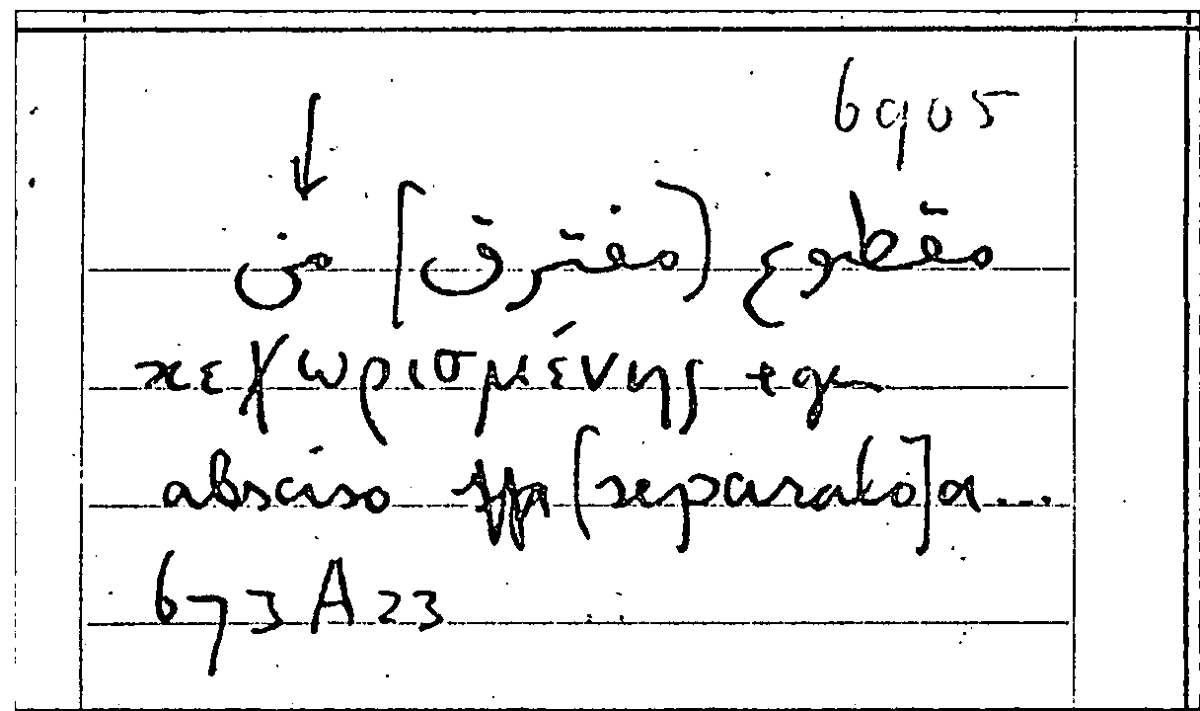 6905
مقطوع (مفترق] من
κεχωρισμένης + gen
absciso [separato] a...
673 A 23